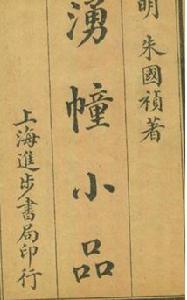 明 朱國禎著
湧幢小品
上海進步書局印行